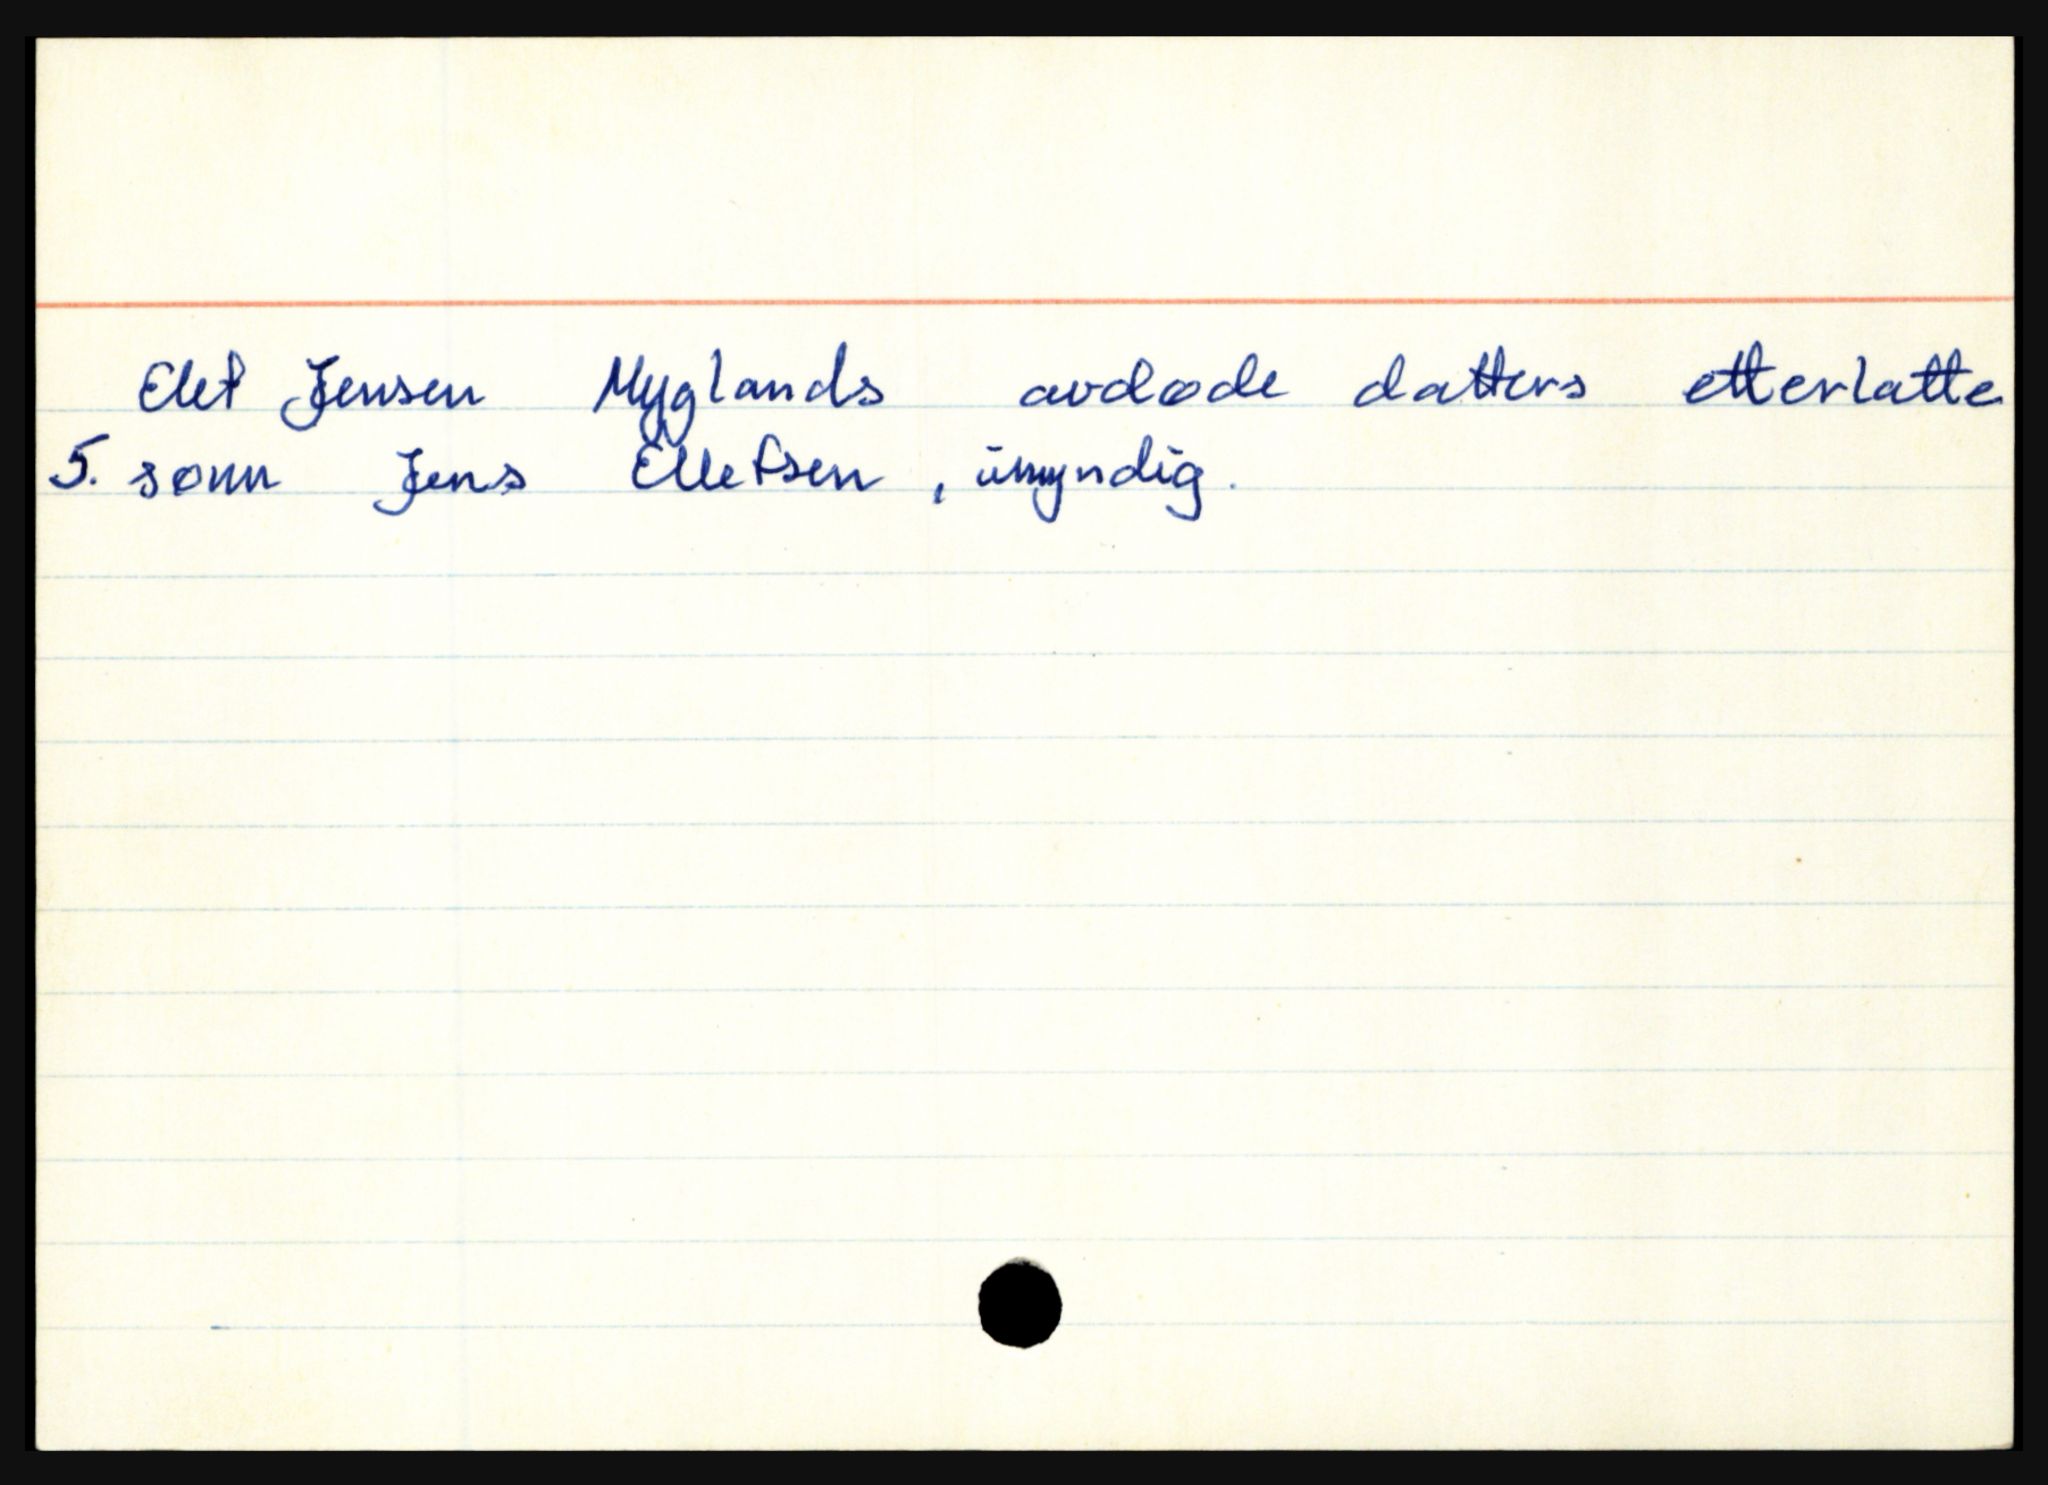 Elef Jensen Myglands avdøde datters etterlatte
5. sønn Jens Ellefsen, umyndig.